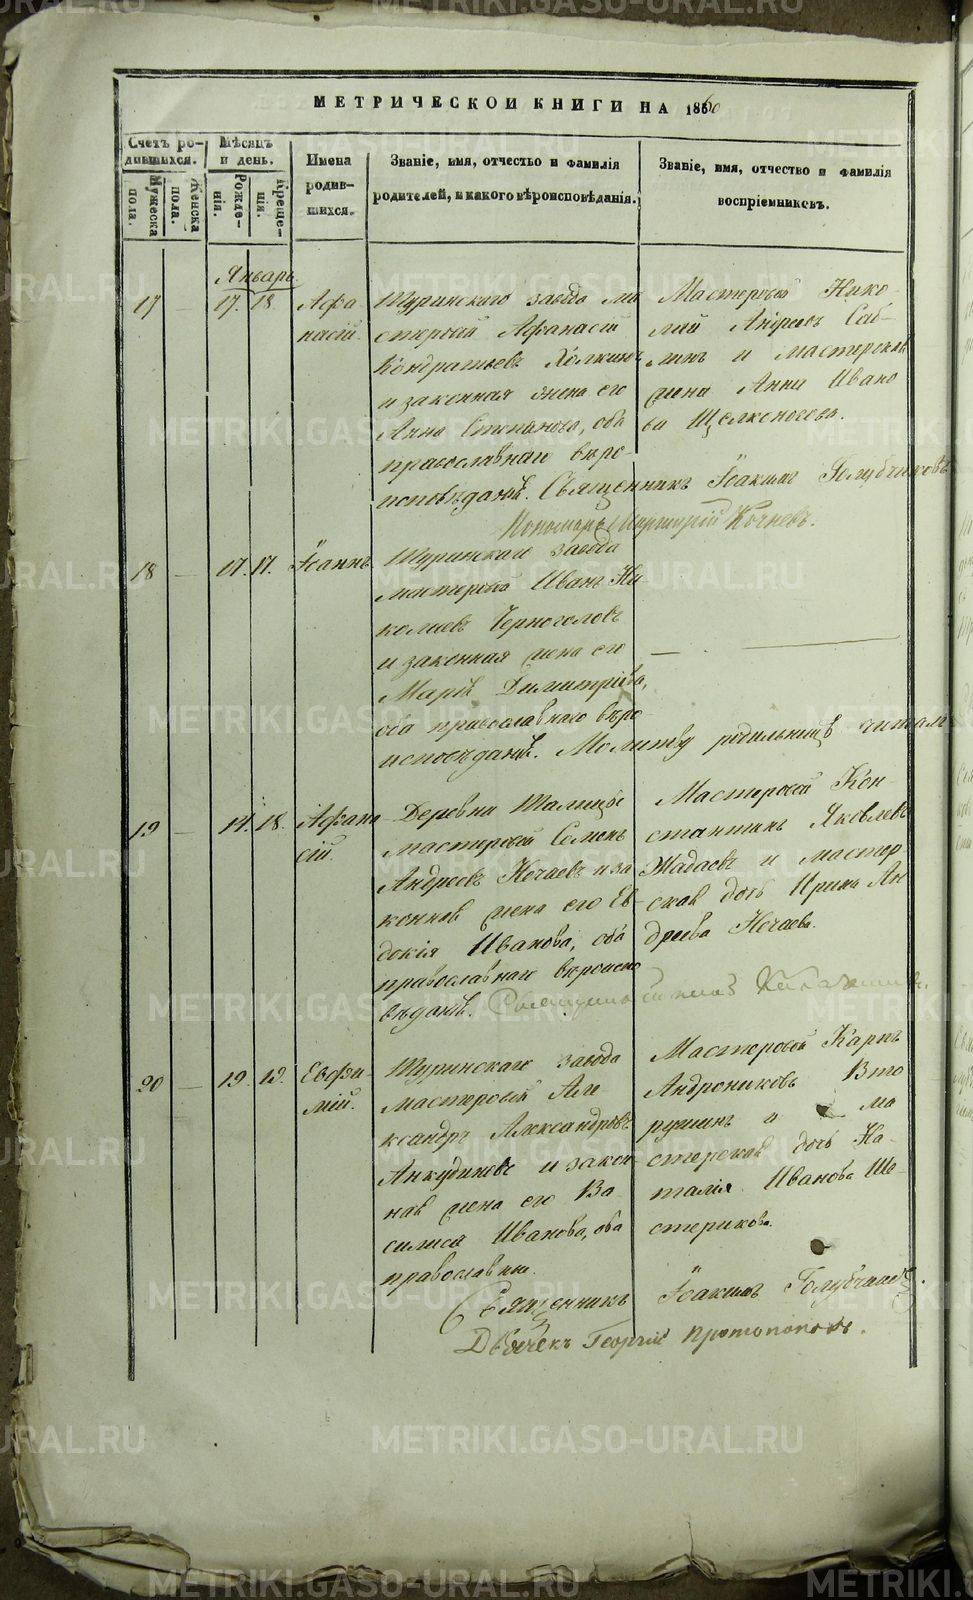 МЕТРИЧЕСКОЙ КНИГИ НА 1860
Счетъ родившихся.
Мѣсяцъ и день.
Имена родившихся.
Званіе, имя, отчество и фамилія родителей, и какого вѣроисповѣданія.
Званіе, имя, отчество и фамилія воспріемниковъ.
Мужеска пола.
Женска пола.
Рожденія.
Крещенія.
Январь.
17 — 17. 18.
Афанасій.
Туринскаго завода мастеровый Афанасій
Кондратьевъ Холкинъ
и законная жена его
Анна Степанова, оба
православнаго вѣроисповѣданія.
Мастеровой Николай Андреевъ
и мастерская
жена Анна Иванова Щелконогова.
Священникъ Іоакимъ Голубчиковъ
Пономарь Порфирій Кочневъ.
18 — 17. 17.
Іоаннъ
Туринскаго завода
мастеровой Иванъ Николаевъ Черноголовъ
и законная жена его
Марія Димитріева,
оба православнаго вѣроисповѣданія. Молитву родильницѣ читалъ
19 — 14. 18.
Афанасій.
Деревни Талицы
мастеровой Семенъ
Андреевъ Нечаевъ и законная жена его Евдокія Иванова, оба
православнаго вѣроисповѣданія.
Мастеровой Константинъ Яковлевъ
Жадаевъ и мастерская дочь Ирина Андреева Нечаева.
20 — 19. 19.
Евфимій.
Туринскаго завода
мастеровый Александръ Александровъ
Анкудиновъ и законная жена его Василиса Иванова, оба
православныи.
Мастеровой Карпъ
Андрониковъ Вторушинъ и мастерская дочь Наталія Иванова Шестерикова.
Священникъ Іоакимъ Голубчиковъ.
Дьячекъ Георгій Протопоповъ.
METRIKI.GASO-URAL.RU